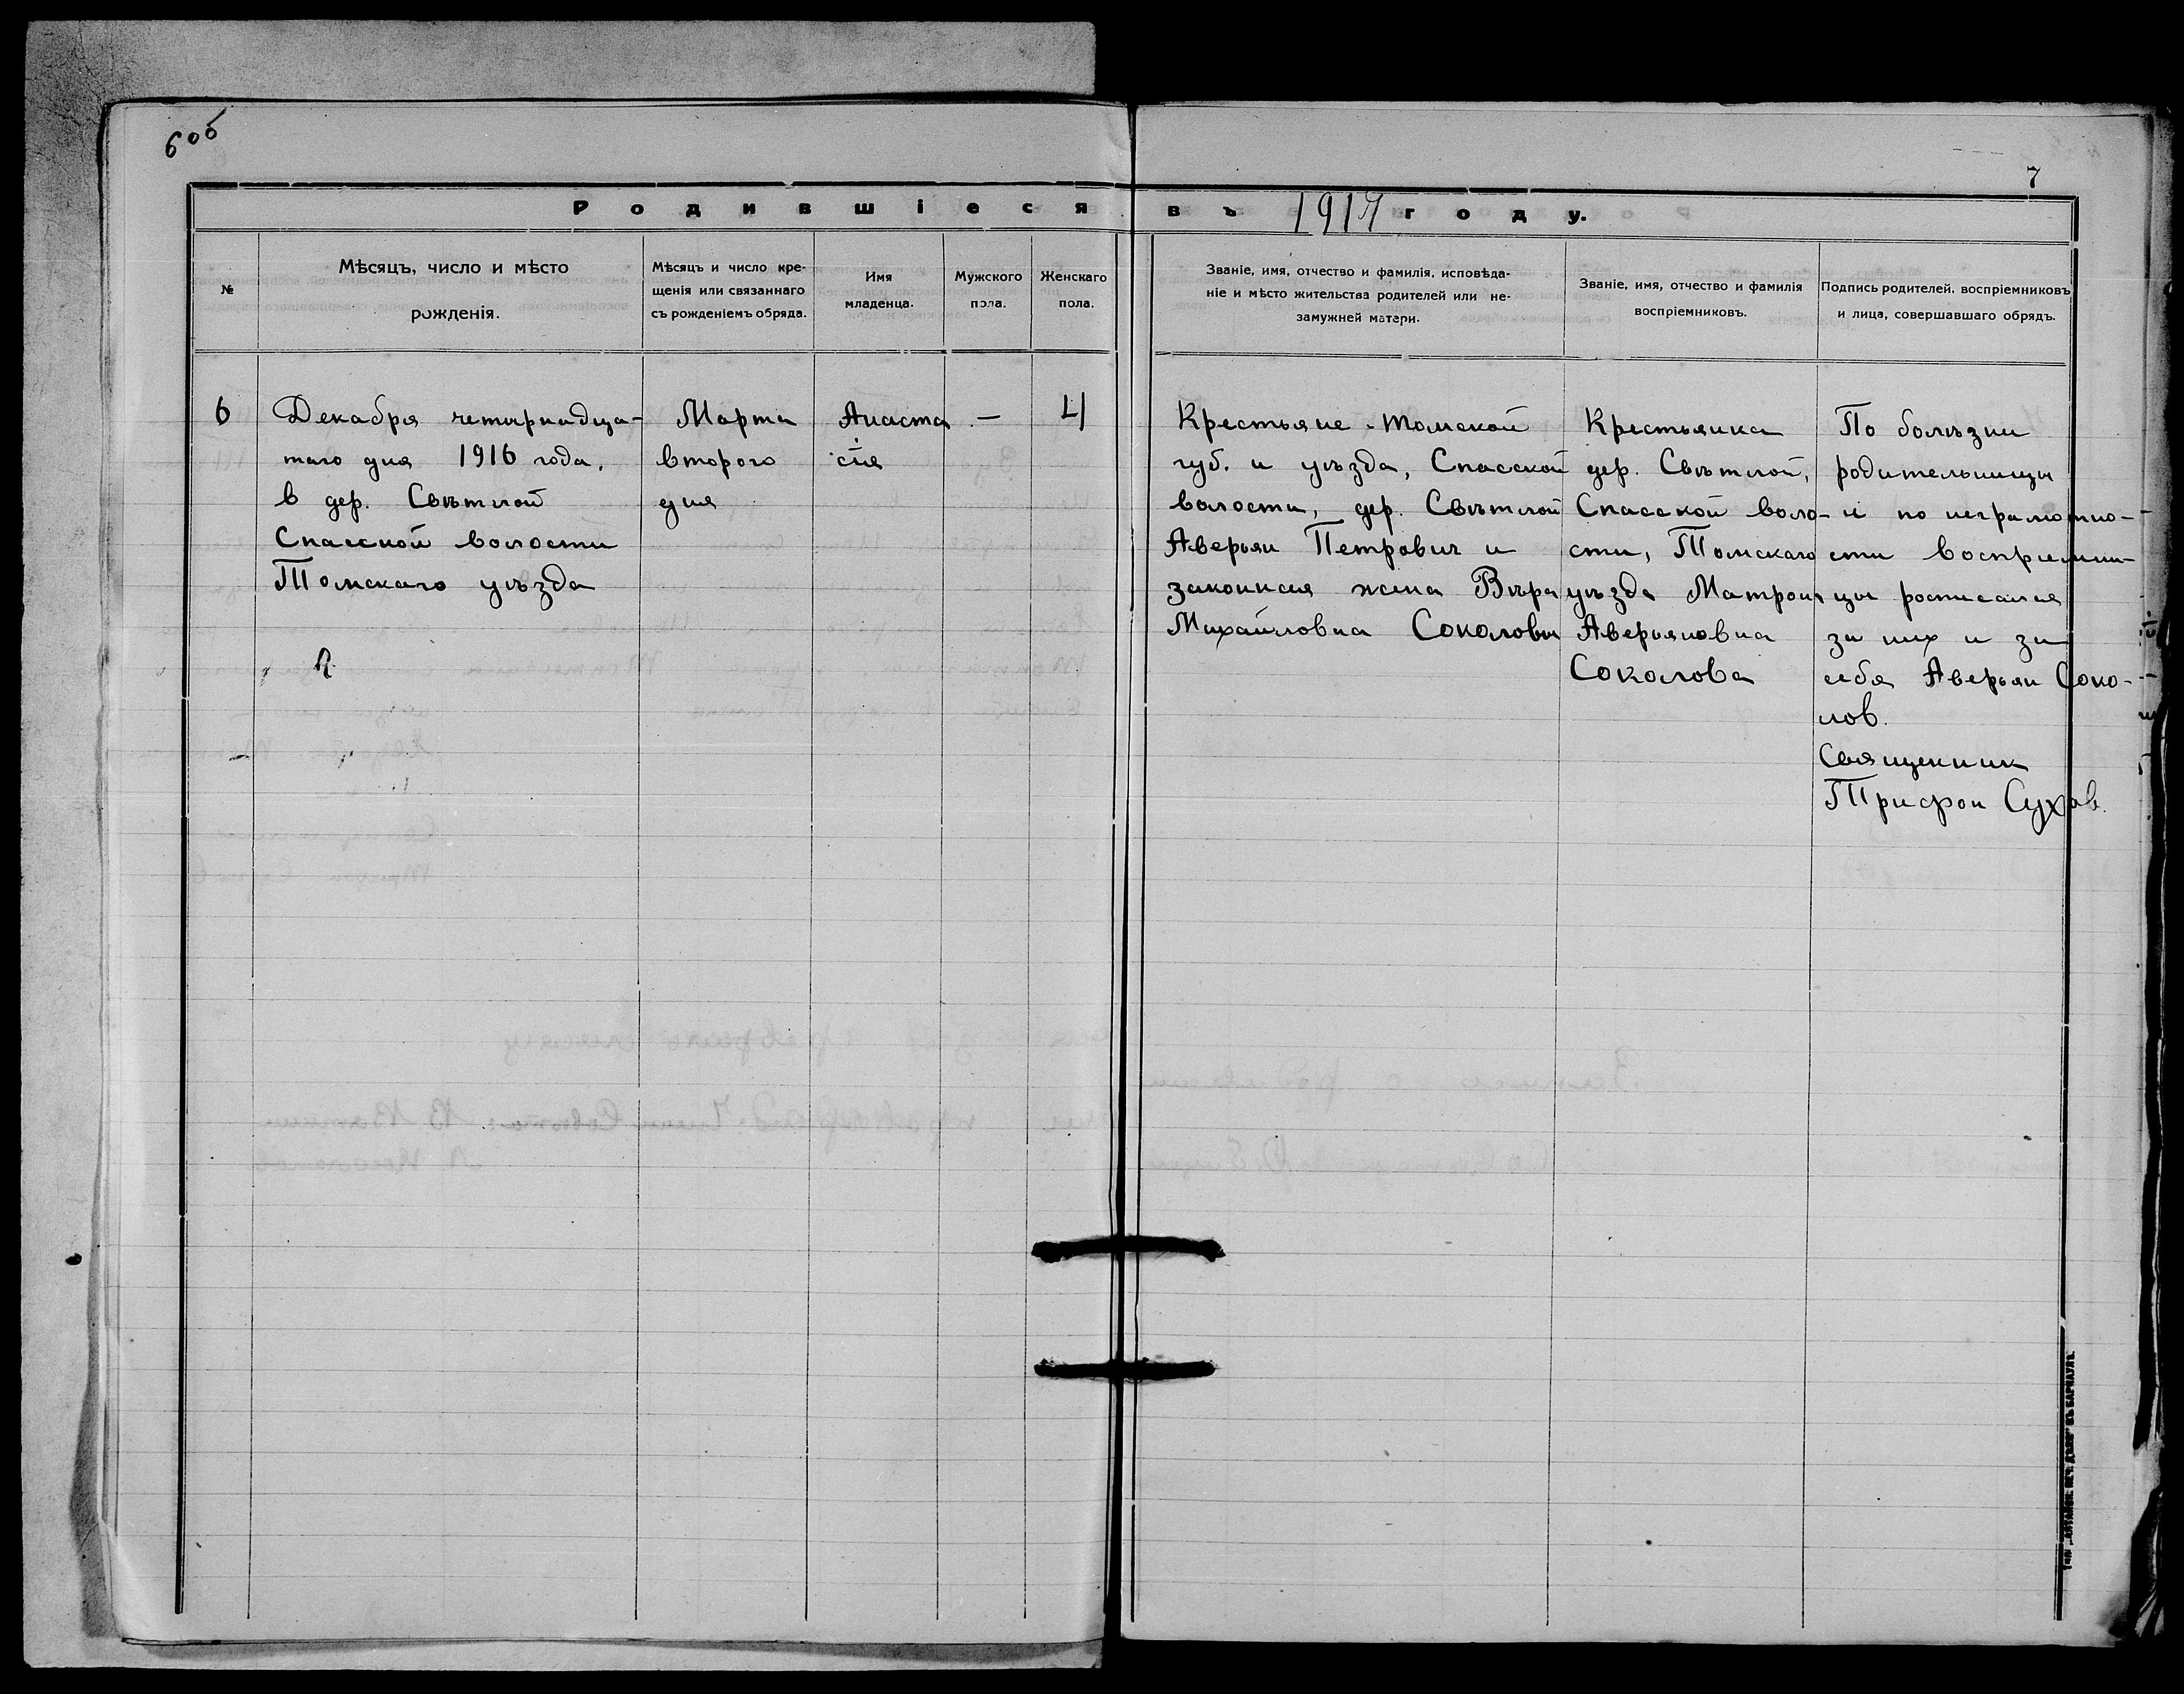 6об
7
Родившіеся въ 1917 году.
№
Мѣсяцъ, число и мѣсто
рожденія.
Мѣсяцъ и число кре-
щенія или связаннаго
съ рожденіемъ обряда.
Имя
младенца.
Мужского
пола.
Женскаго
пола.
Званіе, имя, отчество и фамилія, исповѣда-
ніе и мѣсто жительства родителей или не-
замужней матери.
Званіе, имя, отчество и фамилія
воспріемниковъ.
Подпись родителей, воспріемниковъ
и лица, совершавшаго обрядъ.
6
Декабря четырнадца-
таго дня 1916 года,
в дер. Свѣтлой
Спасской волости
Томскаго уѣзда
Марта
второго
дня
Анаста
сія
—
4
Крестьяне Томской
губ. и уѣзда, Спасской
волости, дер. Свѣтлой
Аверьян Петрович и
законная жена Вѣра
Михайловна Соколовы
Крестьянка
дер. Свѣтлой,
Спасской воло-
сти, Томскаго
уѣзда Матрона
Аверьяновна
Соколова
По болѣзни
родительницы
и по неграмотно-
сти восприемни-
цы росписался
за них и за
себя Аверьян Соко-
лов.
Священник
Трифон Сухов.